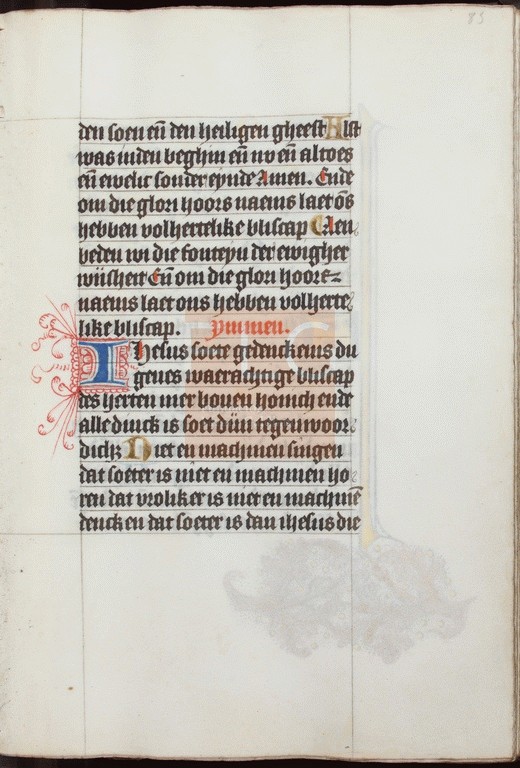 85
den soen en̄ den heiligen gheest Alst
was inden beghin en̄ nv en̄ altoes
en̄ ewelic sonder eynde Amen. Ende
om die glori hoors naems laet ōs
hebben volhertelike bliscap Aen
beden wi die fonteyn der ewigher
wijsheit En̄ om die glori hoore
naems laet ons hebben volherte
like bliscap. Ymmen.
Ihesus soete gedenckenis du
geues waerachtige bliscap
des herten mer bouen honich ende
alle dinck is soet dijn tegenwoor
dich; Niet en machmen singen
dat soeter is niet en machmen ho
ren dat vroliker is niet en machmē
dencken dat soeter is dan ihesus die